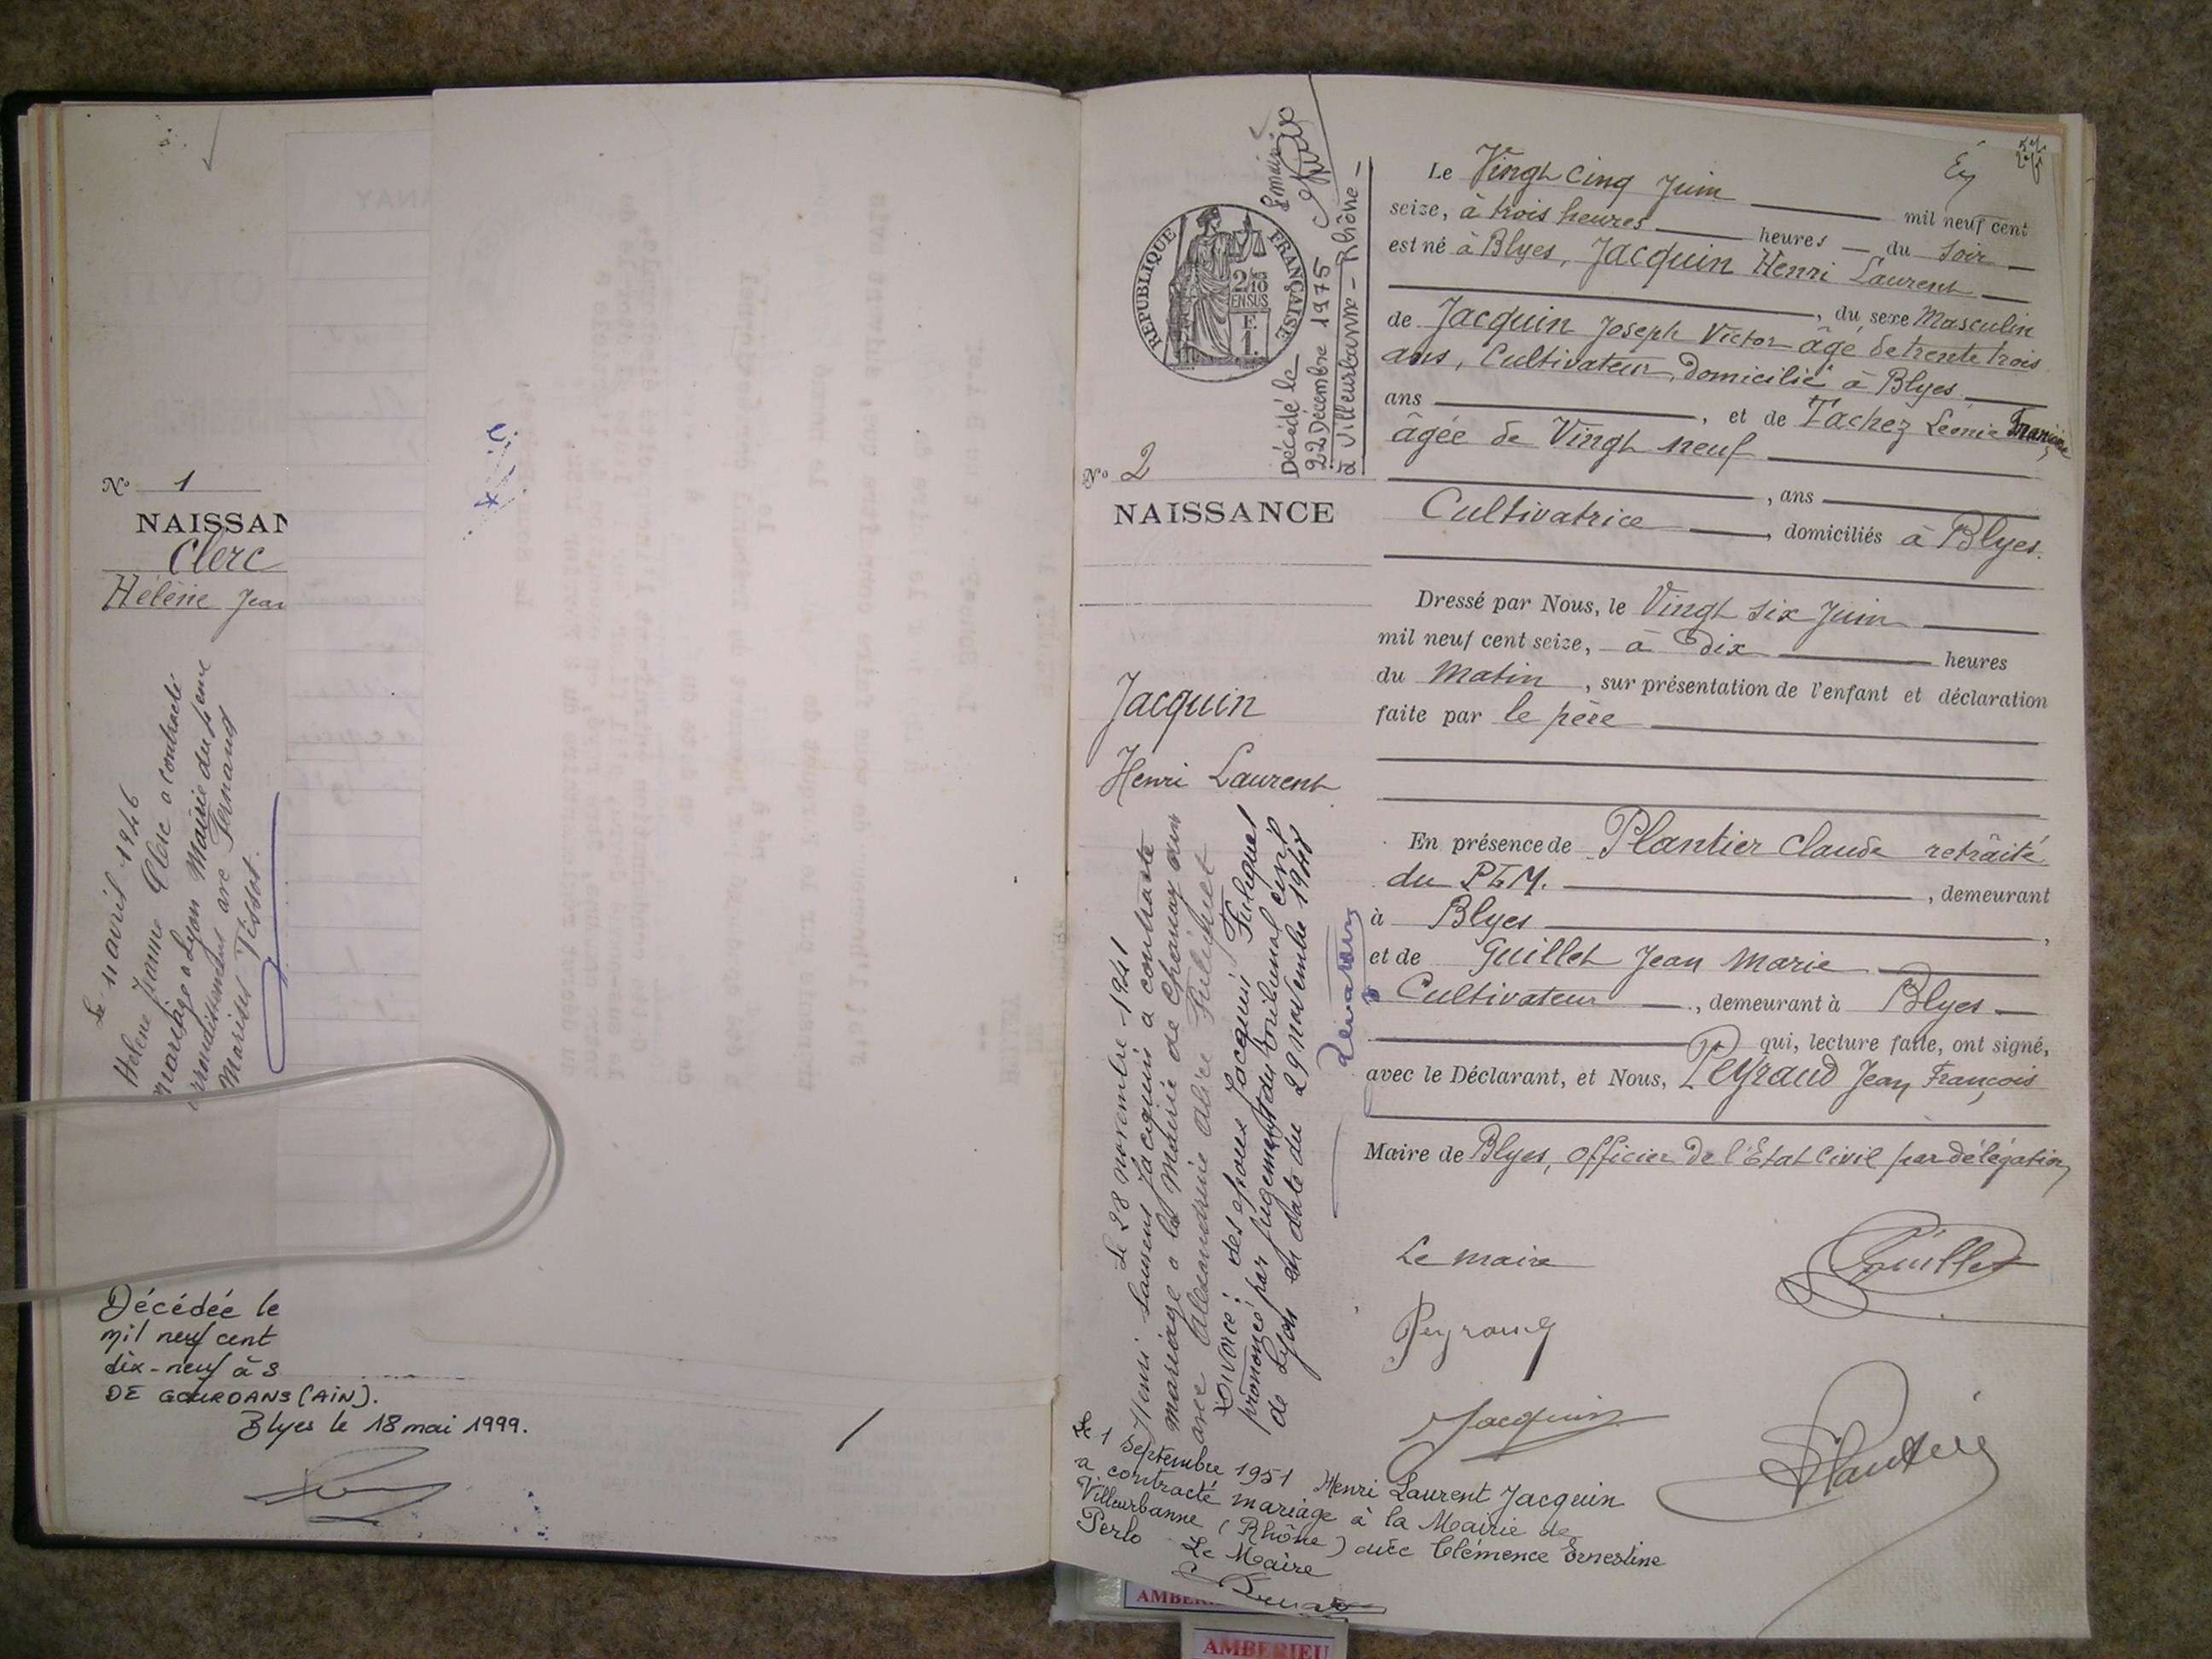 N° 1
NAISSAN
Clerc
Hélène Jean
Le 11 avril 1946
Hélène Jeanne Clerc a contracté
mariage à Lyon Mairie du
arrondissement avec Fernand
Marius Tissot.
Décédée le
mil neuf cent
dix-neuf à S
DE GOURDANS (AIN).
Blyes le 18 mai 1999.
REPUBLIQUE FRANÇAISE
2/10
EN SUS
F.
1.
Décédé le
22 Décembre 1975
à Villeurbanne - Rhône -
N° 2
NAISSANCE
Jacquin
Henri Laurent
Le 28 novembre 1941
Henri Laurent Jacquin a contracté
mariage à la Mairie de Chanay Ain
avec Alexandrine Alice Fuliquet
Divorcé: des époux Jacquin Fuliquet
prononcé par jugement du tribunal civil
de Lyon en date du 29 novembre 1948
Le 1 septembre 1951 Henri Laurent Jacquin
a contracté mariage à la Mairie de
Villeurbanne (Rhône) avec Clémence Ernestine
Perlo Le Maire
Le Vingt cinq Juin mil neuf cent
seize, à trois heures heures du soir
est né à Blyes, Jacquin Henri Laurent
, du sexe Masculin
de Jacquin Joseph Victor âgé de trente trois
ans, Cultivateur, Domicilié à Blyes
ans , et de Tachez Léonie Françoise
âgée de Vingt neuf
, ans
Cultivatrice , domiciliés à Blyes.
Dressé par Nous, le Vingt six Juin
mil neuf cent seize, à Dix heures
du Matin , sur présentation de l'enfant et déclaration
faite par le père
En présence de Plantier Claude retraité
du PLM. , demeurant
à Blyes ,
et de Guillet Jean Marie
Cultivateur , demeurant à Blyes
qui, lecture faite, ont signé,
avec le Déclarant, et Nous, Peyraud Jean François
Maire de Blyes, officier de l'Etat Civil par délégation
Le maire
Guillet
Peyraud
Jacquin
Plantier
AMBERIEU